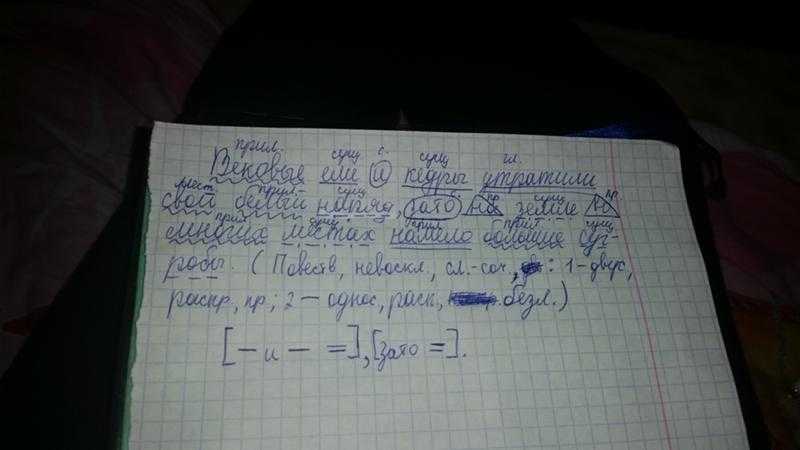 прил. сущ с. сущ гл.
Вековые ели и кедры утратили
мест. прил. сущ пр сущ пр
свой белый наряд, зато на земле во
прил сущ прил сущ
многих местах намело большие суг-
робы. (Повеств, невоскл, сл.-соч, : 1-двус,
распр, пр; 2 - однос, расп, безл.)
[- и - =], [зато =].